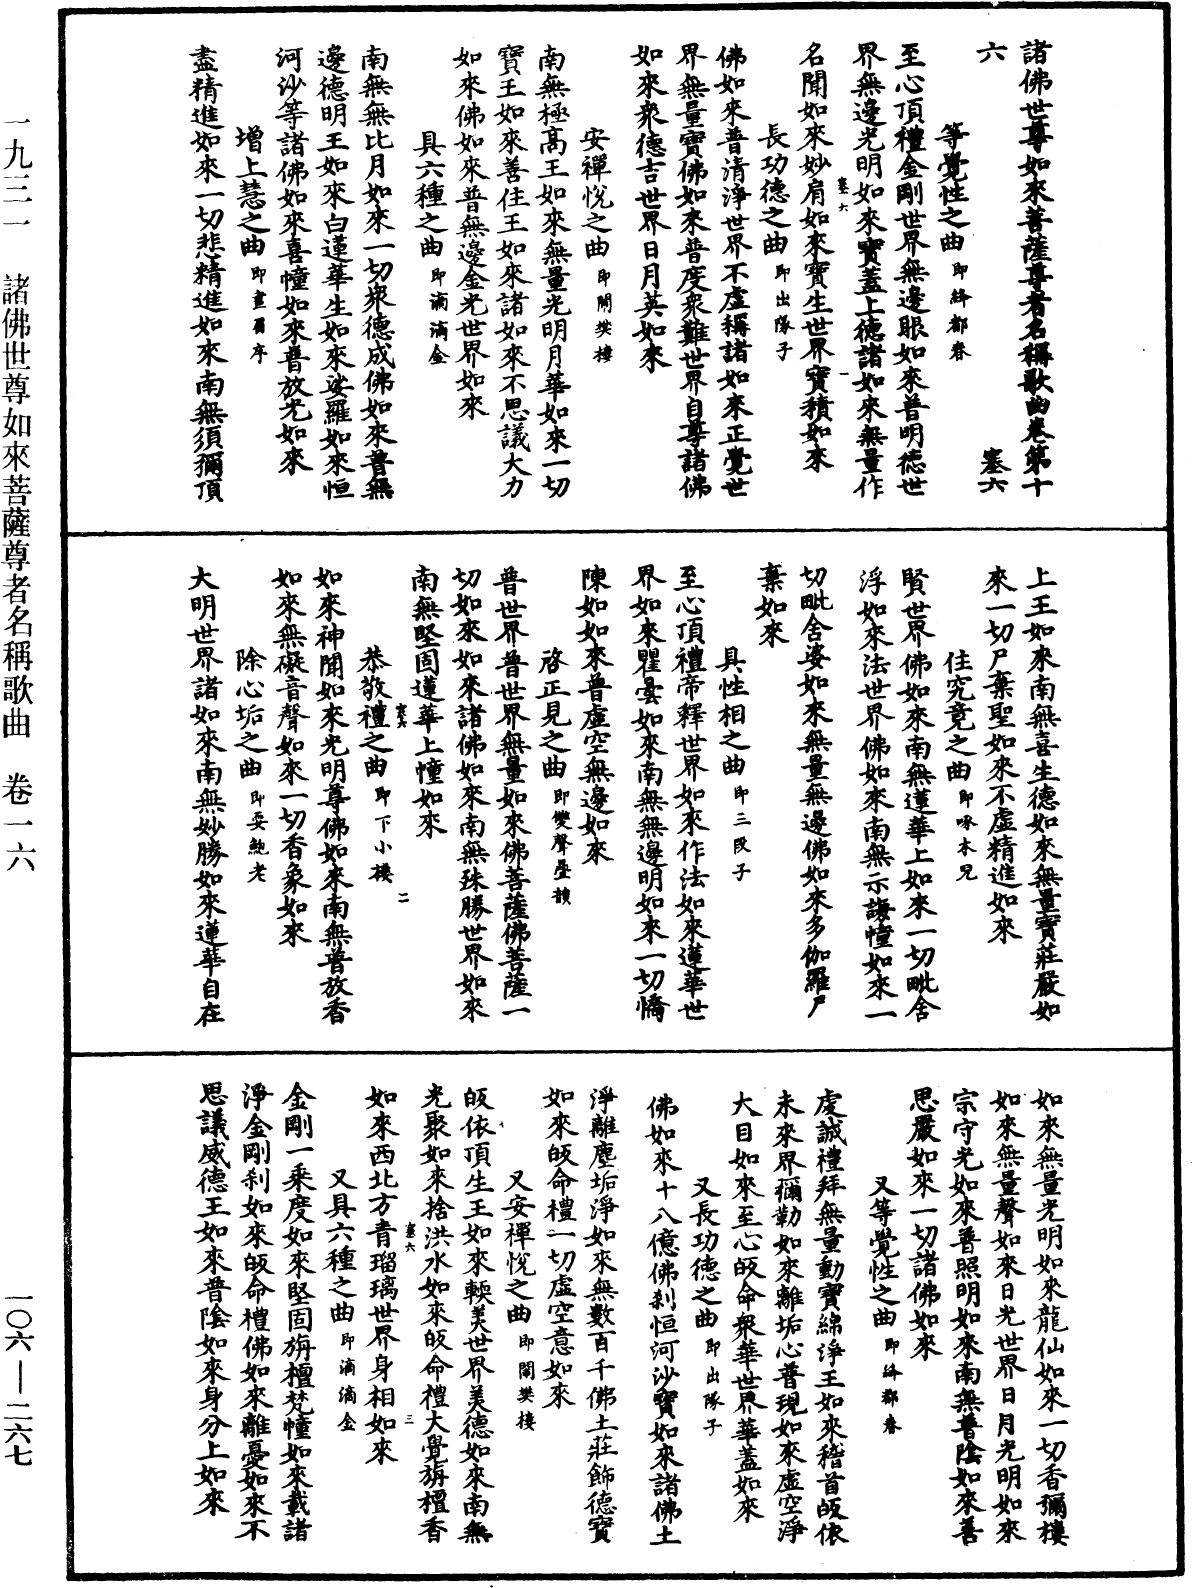 諸佛世尊如來菩薩尊者名稱歌曲卷第十
六　塞六
等覺性之曲 即絳都春
至心頂禮金剛世界無邊眼如來普明德世
界無邊光明如來寶蓋上德諸如來無量作
名聞如來妙肩如來寶生世界寶積如來
塞六　一
長功德之曲 即出隊子
佛如來普清淨世界不虛稱諸如來正覺世
界無量寶佛如來普度眾難世界自尊諸佛
如來眾德吉世界日月英如來
安禪悅之曲 即鬧樊樓
南無極高王如來無量光明月華如來一切
寶王如來善住王如來諸如來不思議大力
如來佛如來普無邊金光世界如來
具六種之曲 即滴滴金
南無無比月如來一切眾德成佛如來普無
邊德明王如來白蓮華生如來娑羅如來恒
河沙等諸佛如來喜幢如來普放光如來
增上慧之曲 即畫眉序
盡精進如來一切悲精進如來南無須彌頂
上王如來南無喜生德如來無量寶莊嚴如
來一切尸棄聖如來不虛精進如來
住究竟之曲 即啄木兒
賢世界佛如來南無蓮華上如來一切毗舍
浮如來法世界佛如來南無示誨幢如來一
切毗舍婆如來無量無邊佛如來多伽羅尸
棄如來
具性相之曲 即三段子
至心頂禮帝釋世界如來作法如來蓮華世
界如來瞿曇如來南無無邊明如來一切憍
陳如如來普虛空無邊如來
啓正見之曲 即雙聲疊韻
普世界普世界無量如來佛菩薩佛菩薩一
切如來如來諸佛如來南無殊勝世界如來
南無堅固蓮華上幢如來
塞六　二
恭敬禮之曲 即下小樓
如來神聞如來光明尊佛如來南無普放香
如來無礙音聲如來一切香象如來
除心垢之曲 即耍鮑老
大明世界諸如來南無妙勝如來蓮華自在
如來無量光明如來龍仙如來一切香彌樓
如來無量聲如來日光世界日月光明如來
宗守光如來普照明如來南無普陰如來善
思嚴如來一切諸佛如來
又等覺性之曲 即絳都春
虔誠禮拜無量動寶綿淨王如來稽首皈依
未來界彌勒如來離垢心普現如來虛空淨
大目如來至心皈命眾華世界華蓋如來
又長功德之曲 即出隊子
佛如來十八億佛剎恒河沙寶如來諸佛土
淨離塵垢淨如來無數百千佛土莊飾德寶
如來皈命禮一切虛空意如來
又安禪悅之曲 即鬧樊樓
皈依頂生王如來輭美世界美德如來南無
光聚如來捨洪水如來皈命禮大覺旃檀香
如來西北方青瑠璃世界身相如來
塞六　三
又具六種之曲 即滴滴金
金剛一乘度如來堅固旃檀梵幢如來載諸
淨金剛剎如來皈命禮佛如來離憂如來不
思議威德王如來普陰如來身分上如來
一九三一　諸佛世尊如來菩薩尊者名稱歌曲　卷一六　一〇六—二六七